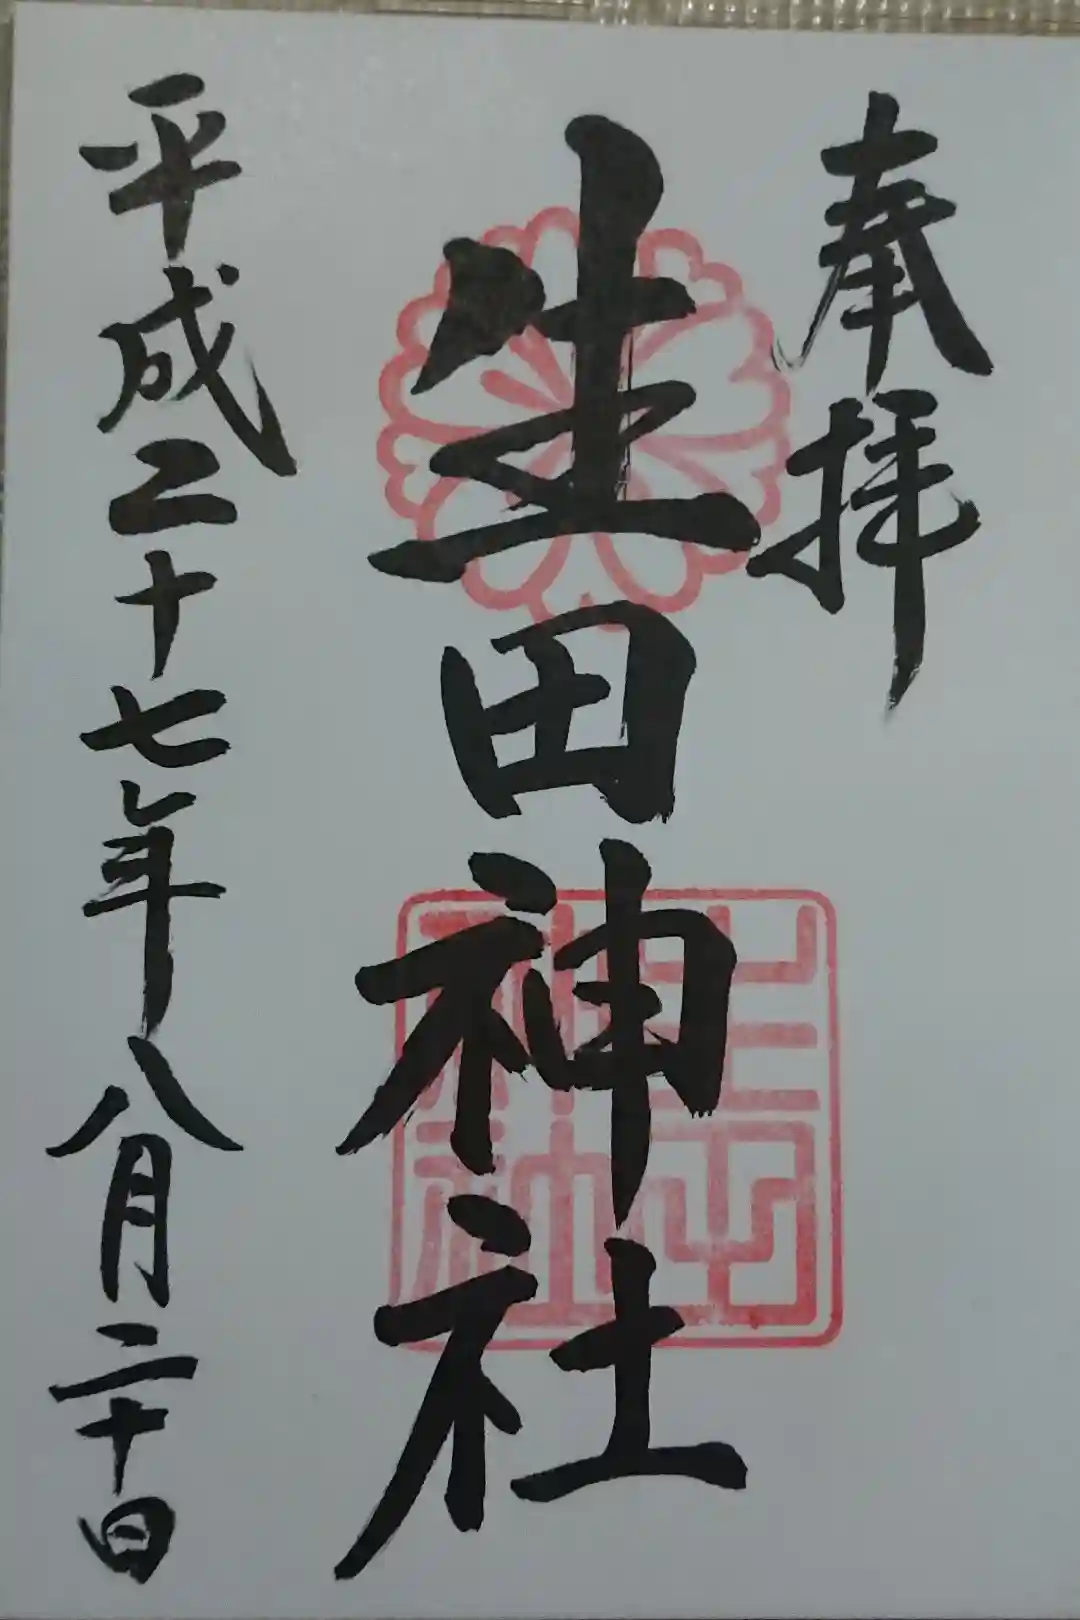 奉拝
生田神社
平成二十七年八月二十日
生田神社